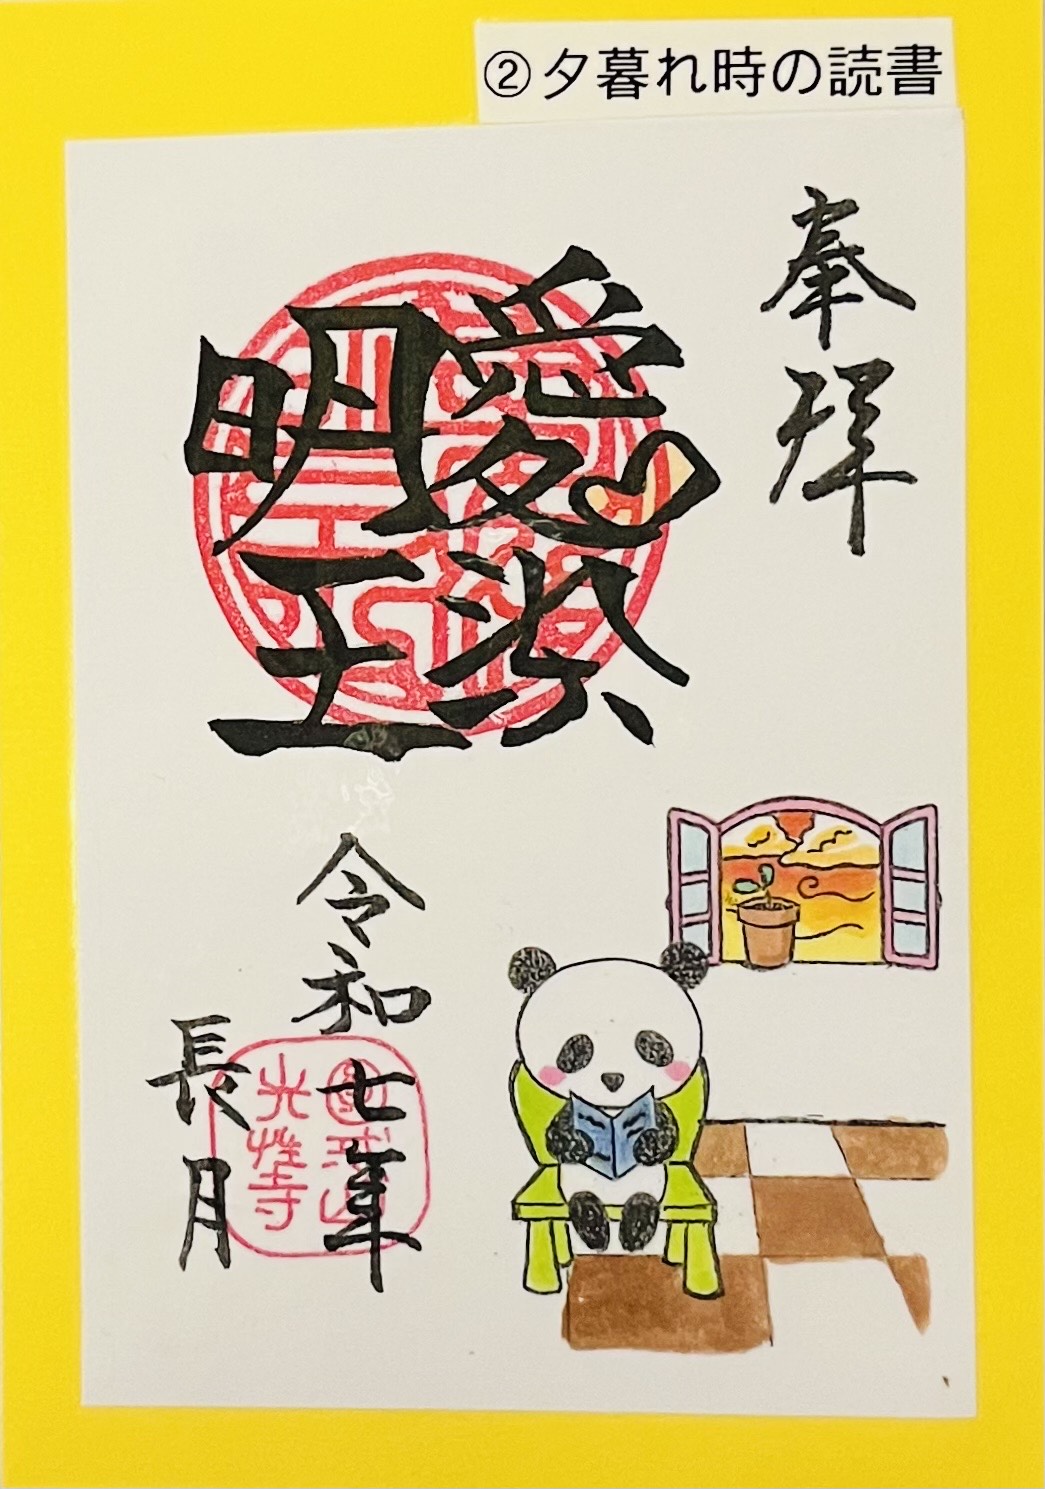 ②夕暮れ時の読書
奉拝
愛染
明王
令和七年
長月
光性寺